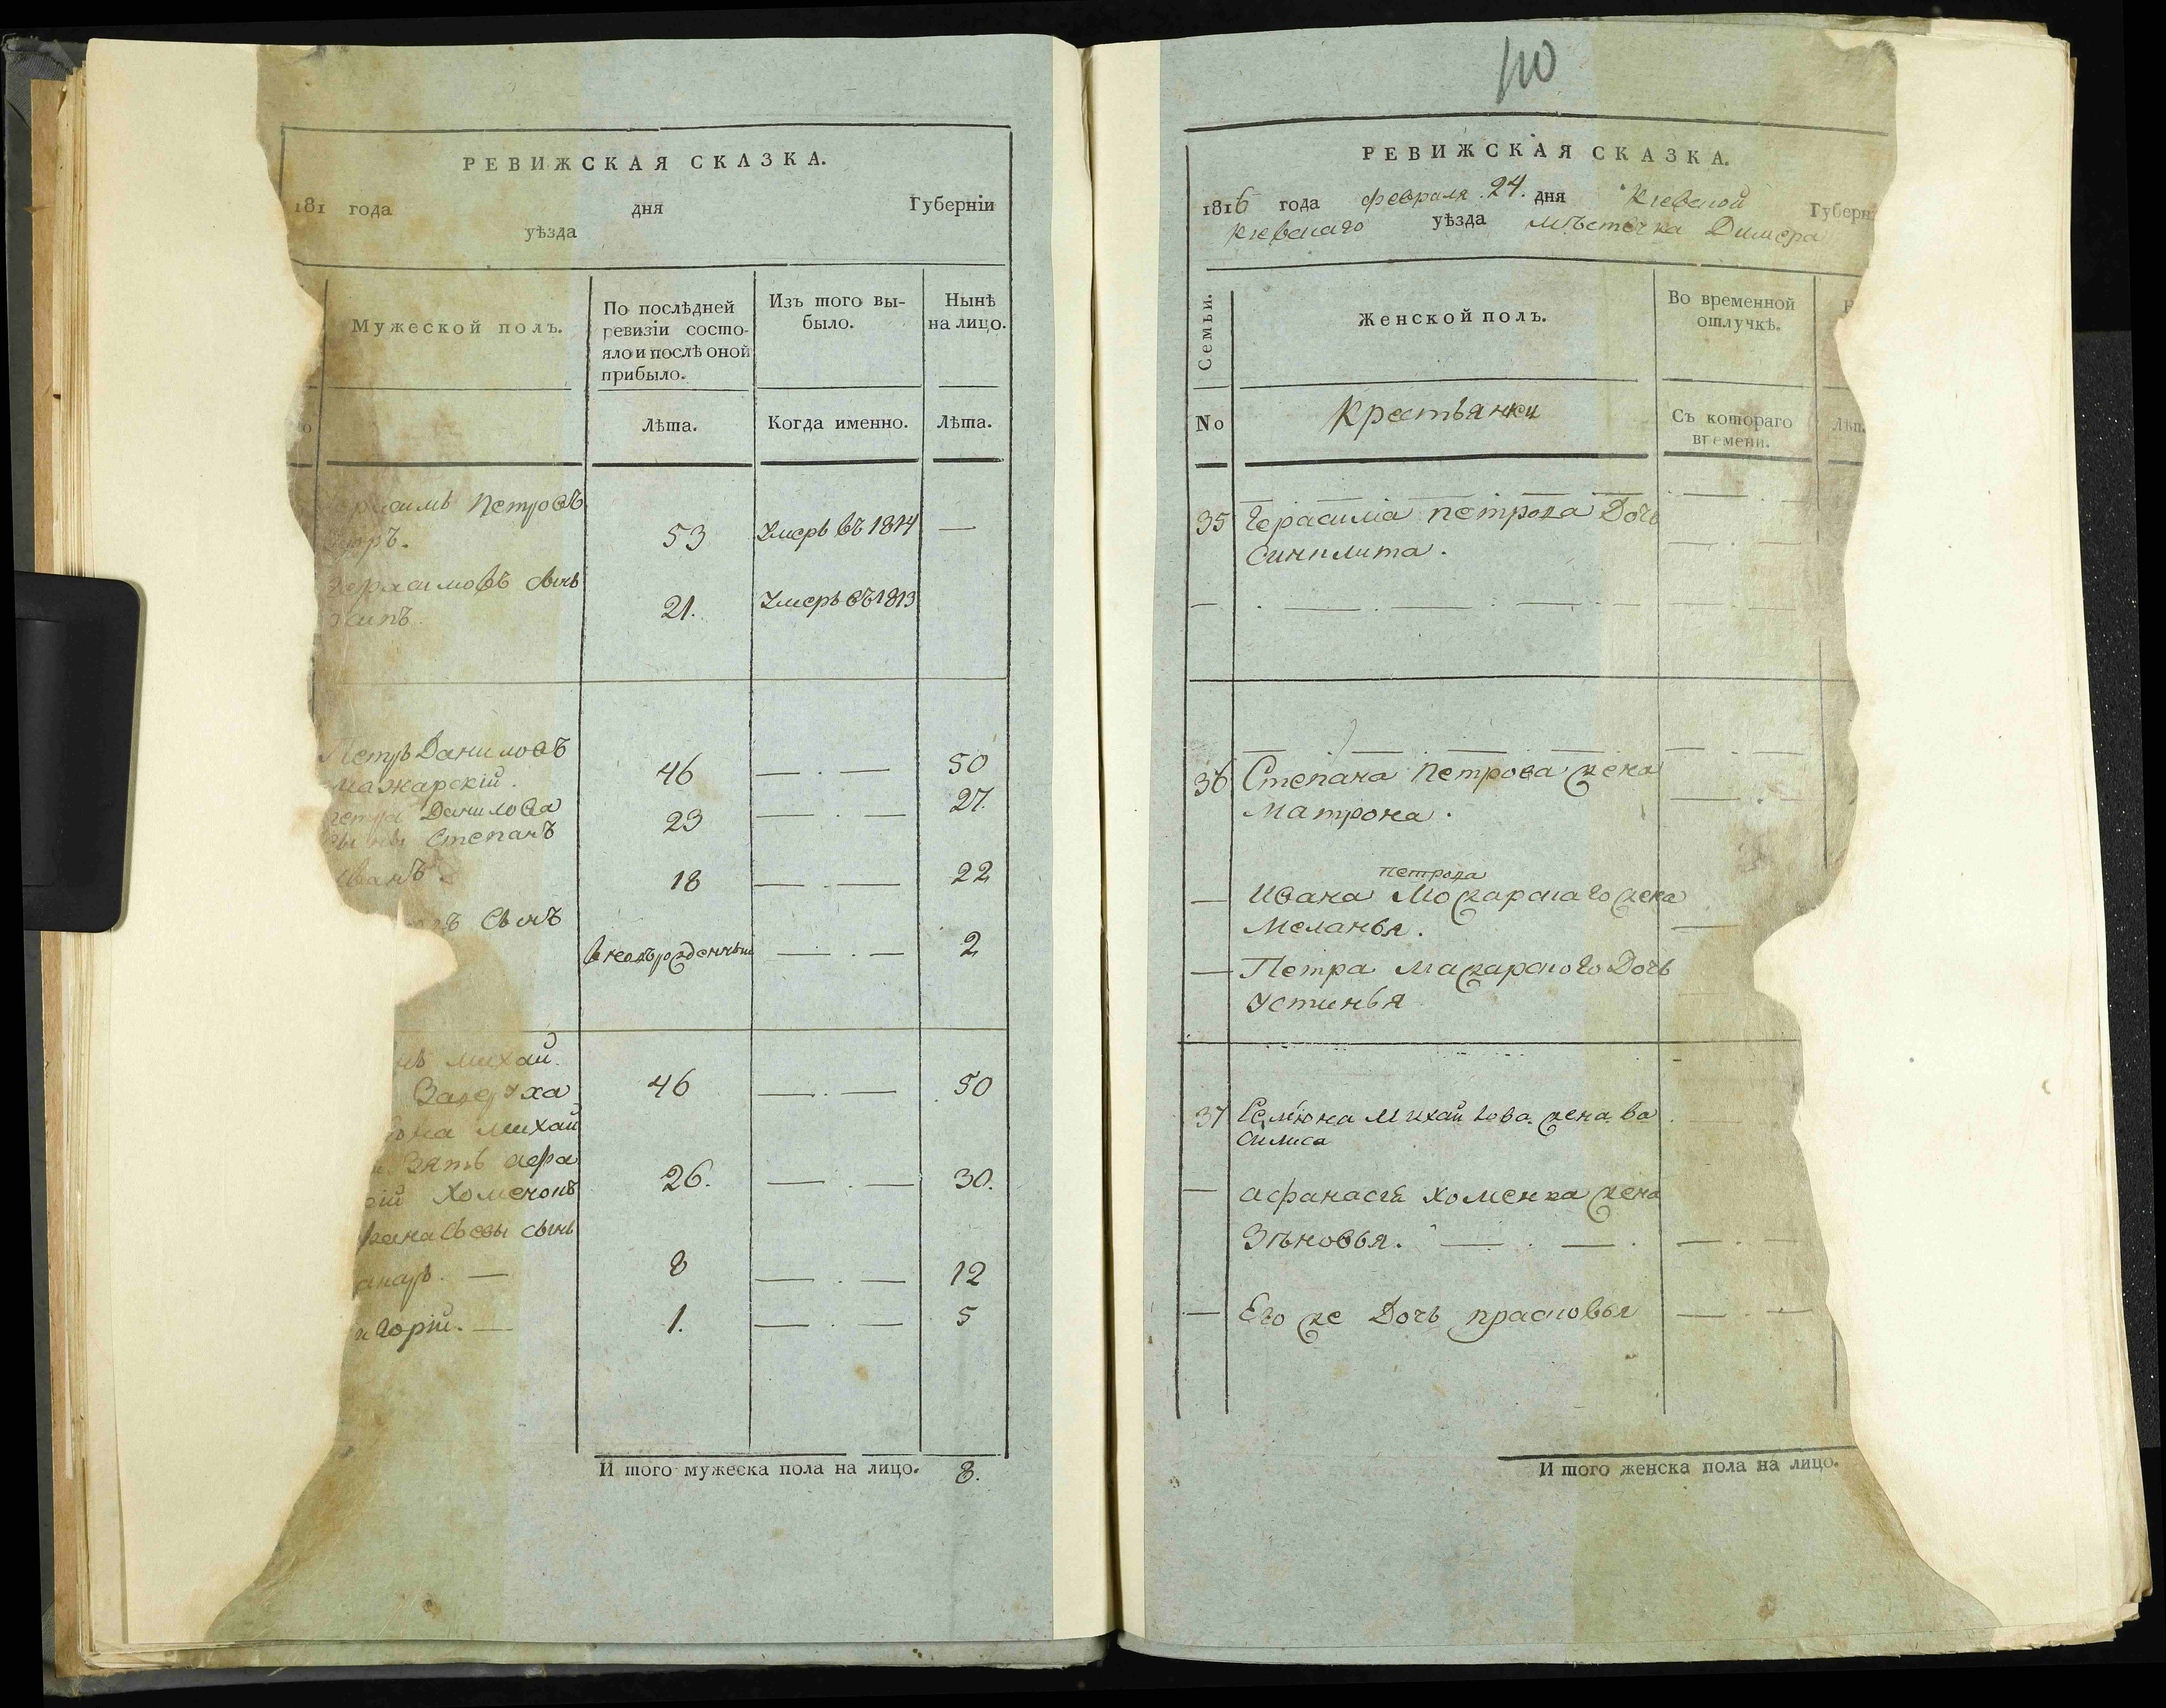 РЕВИЖСКАЯ СКАЗКА.
181 года дня Губерніи
уѣзда
Мужеской полъ.
По послѣдней
ревизіи состо-
яло и послѣ оной
прибыло.
Изъ того вы-
было.
Нынѣ
на лицо.
Лѣта.
Когда именно.
Лѣта.
Петровъ
53 Умеръ въ 1814 —
Герасимовъ сынъ
21. Умеръ въ 1813
Петръ Даниловъ
Мажарскій. 46 — . — 50
Петра Данилова
сыны Степанъ 23 — . — 27.
Иванъ. 18 — . — 22
Сынъ
вновьрожденный — . — 2
михай
46 — . — 50
михай
Зять афа
Хоменокъ 26. — . — 30.
сынъ
8 — . — 12
горій. — 1. — . — 5
И того мужеска пола на лицо. 8.
110
РЕВИЖСКАЯ СКАЗКА.
1816 года февраля 24. дня Кіевской Губерн
Кіевскаго уѣзда мѣстечка Димера
Семьи.
Женской полъ.
Во временной
отлучкѣ.
No
Крестьянки
Съ котораго
времени.
Лѣт.
35 Герасима петрова Дочь
36 Степана Петрова жена
Матрона.
петрова
— Ивана Можарскаго жена
Меланья.
— Петра Мажарского Дочь
Устинья
37 Семіона Михайлова жена Ва
силиса
— афанасія хоменка жена
Зѣновья. — . — .
— Его же Дочь прасковья
И того женска пола на лицо.